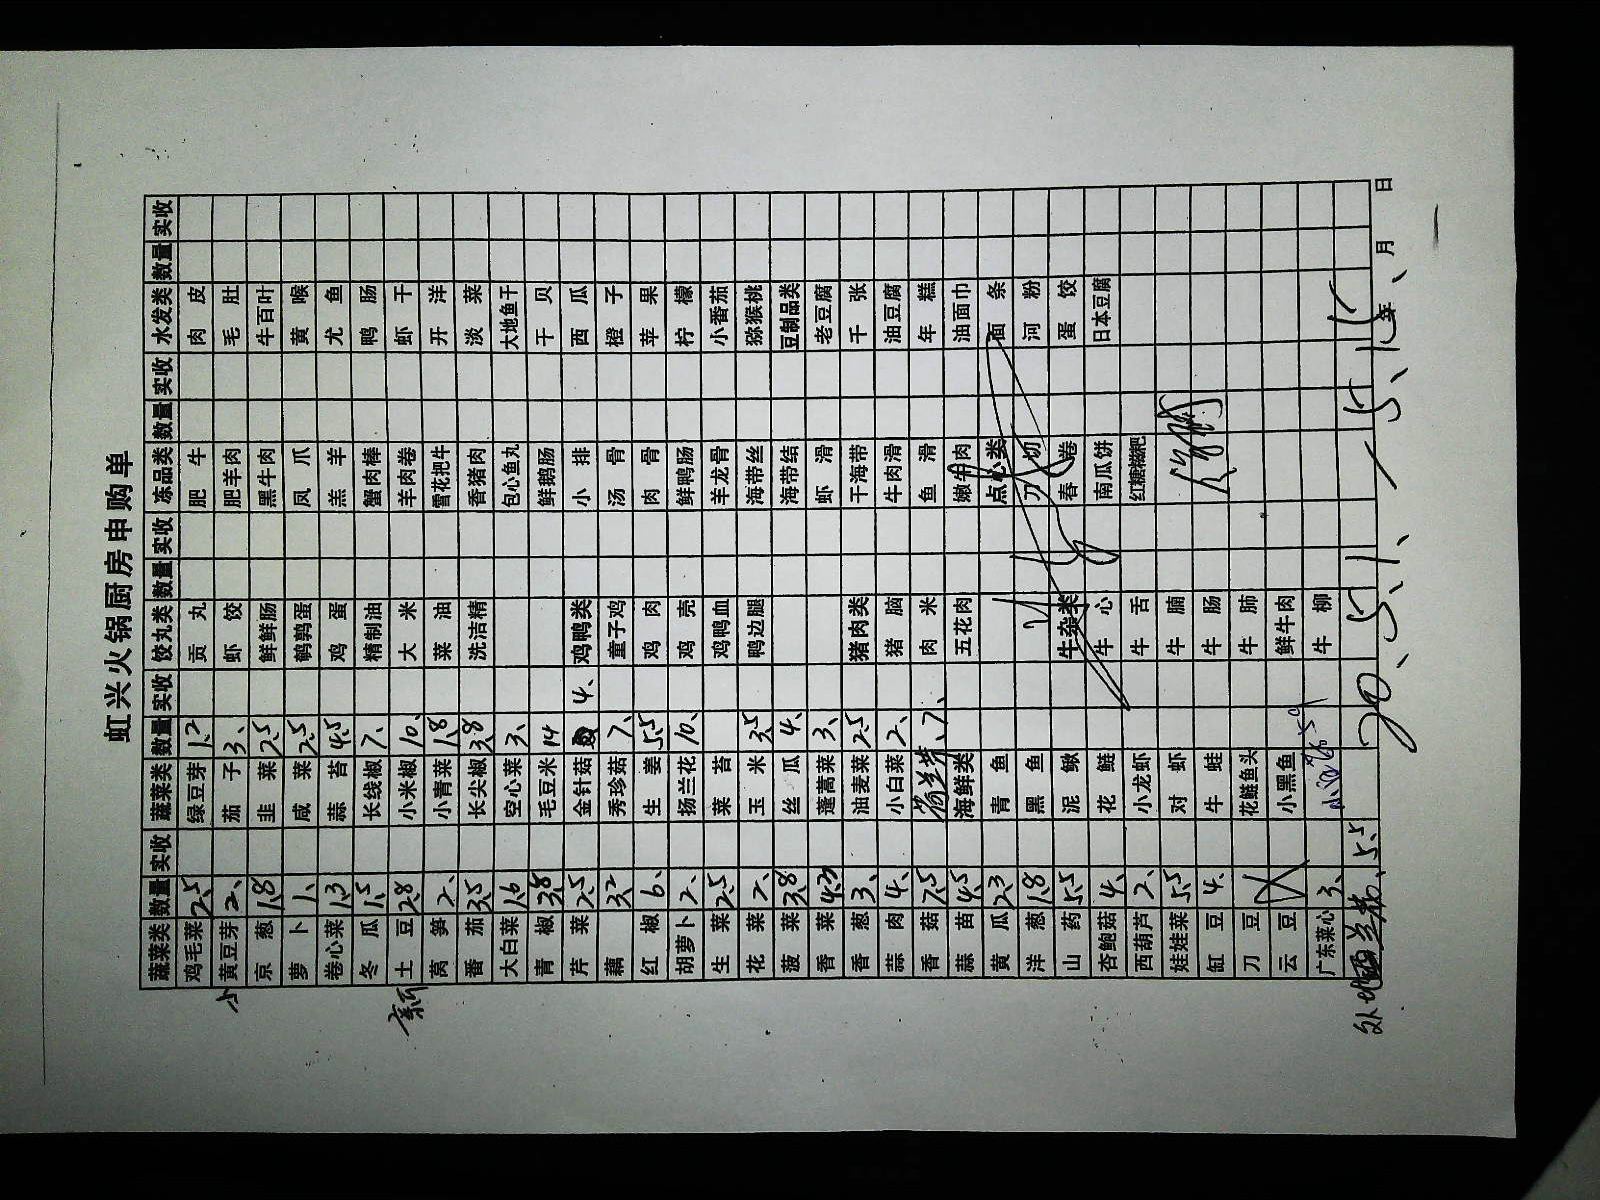 虹兴火锅厨房申购单
蔬菜类 数量 实收 蔬菜类 数量 实收 饺丸类 数量 实收 冻品类 数量 实收 水发类 数量 实收
鸡毛菜 2.5 绿豆芽 1.2 贡丸 肥牛 肉皮
小 黄豆芽 2、 茄子 3、 虾饺 肥羊肉 毛肚
京葱 1.8 韭菜 2.5 鲜鲜肠 黑牛肉 牛百叶
萝卜 1、 咸菜 2.5 鹌鹑蛋 凤爪 黄喉
卷心菜 1.3 蒜苔 4.5 鸡蛋 羔羊 尤鱼
冬瓜 1.5 长线椒 7、 精制油 蟹肉棒 鸭肠
新 土豆 2.8 小米椒 10、 大米 羊肉卷 虾干
莴笋 2、 小青菜 1.8 菜油 雪花把牛 开洋
番茄 3.5 长尖椒 3.8 洗洁精 香猪肉 淡菜
大白菜 1.6 空心菜 3、 包心鱼丸 大地鱼干
青椒 3.8 毛豆米 14 鲜鹅肠 干贝
芹菜 2.5 金针菇 4、 鸡鸭类 小排 西瓜
藕 3.2 秀珍菇 7、 童子鸡 汤骨 橙子
红椒 6、 生姜 5.5 鸡肉 肉骨 苹果
胡萝卜 2、 扬兰花 10、 鸡壳 鲜鸭肠 柠檬
生菜 2.5 菜苔 鸡鸭血 羊龙骨 小番茄
花菜 2、 玉米 3.5 鸭边腿 海带丝 猕猴桃
菠菜 3.8 丝瓜 4、 海带结 豆制品类
香菜 4.3 蓬蒿菜 3、 虾滑 老豆腐
香葱 3、 油麦菜 2.5 猪肉类 干海带 千张
蒜肉 4、 小白菜 2、 猪脑 牛肉滑 油豆腐
香菇 7.5 7、 肉米 鱼滑 年糕
蒜苗 4.5 海鲜类 五花肉 嫩牛肉 油面巾
黄瓜 2.3 青鱼 点心类 面条
洋葱 1.8 黑鱼 刀切 河粉
山药 5.5 泥鳅 牛杂类 春卷 蛋饺
杏鲍菇 4、 花鲢 牛心 南瓜饼 日本豆腐
西葫芦 2、 小龙虾 牛舌 红糖糍粑
娃娃菜 5.5 对虾 牛腩
缸豆 4、 牛蛙 牛肠
刀豆 花鲢鱼头 牛肺
云豆 小黑鱼 鲜牛肉
广东菜心 3、 牛柳
5.5
年 月 日